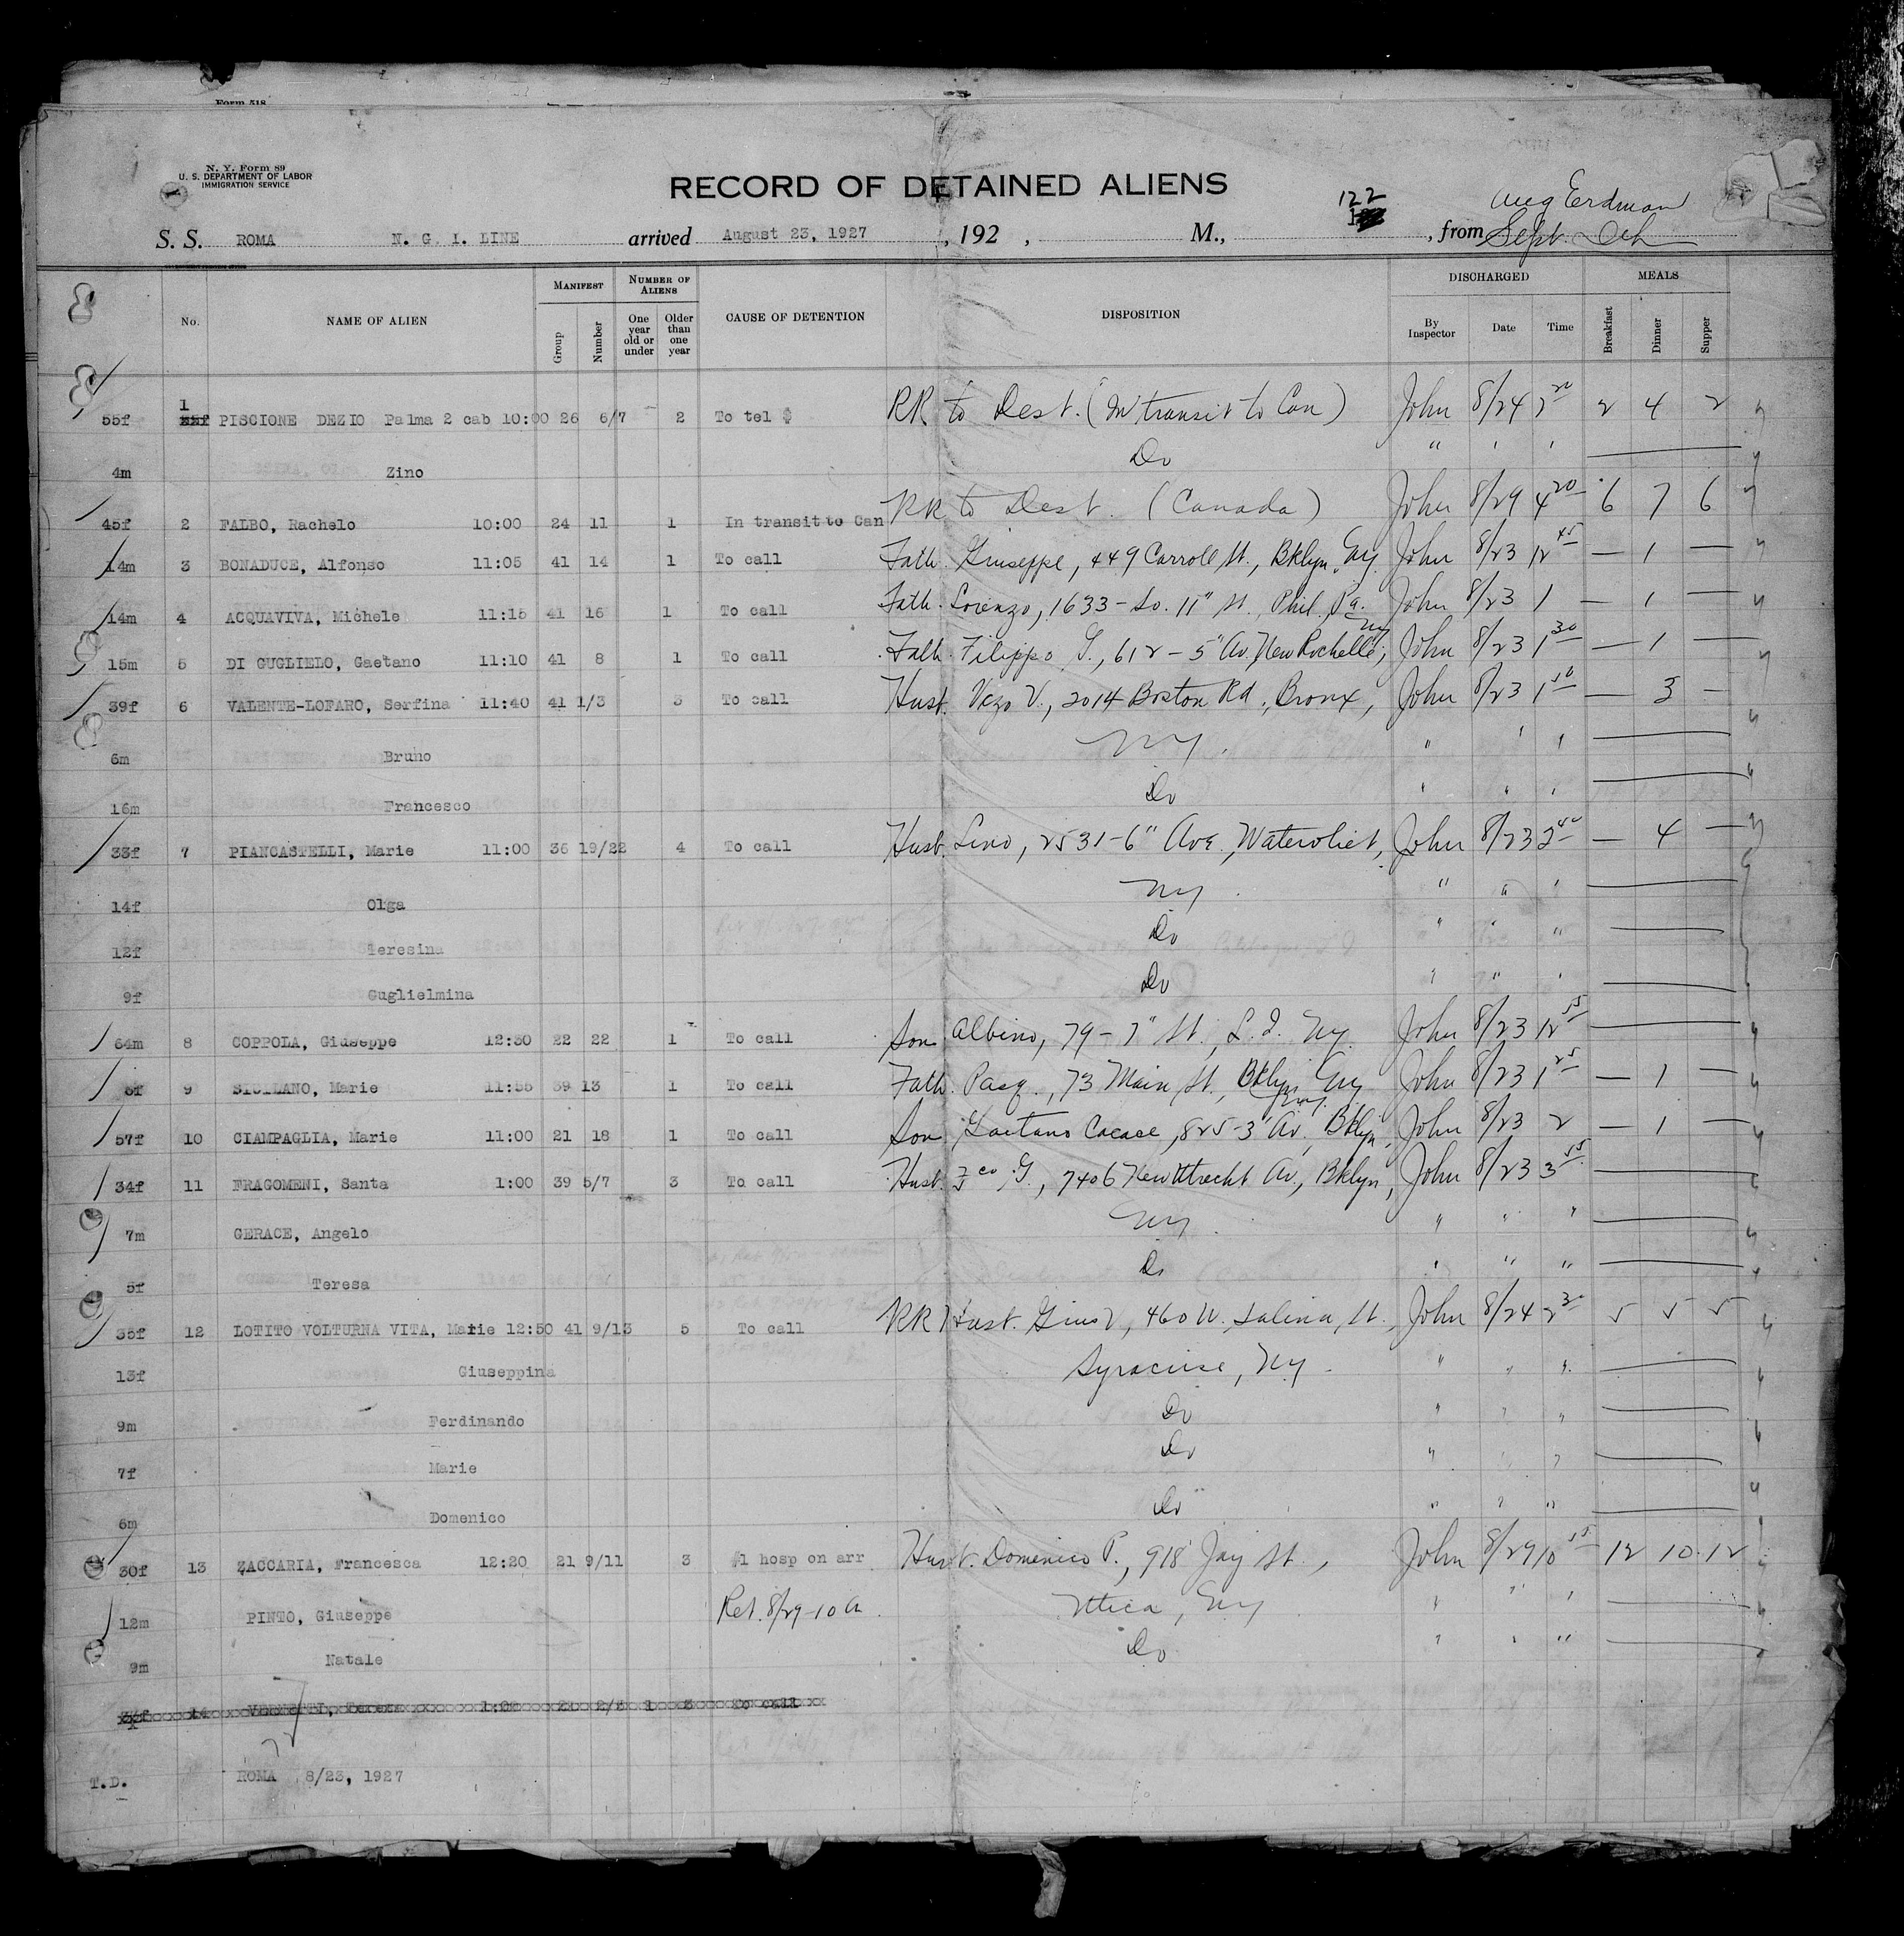 Form 518
N. Y. Form 89
U. S. DEPARTMENT OF LABOR
IMMIGRATION SERVICE
RECORD OF DETAINED ALIENS
122
Aug Erdman
S. S. ROMA N. G. I. LINE arrived August 23, 1927, 192 , M., , from Sept.
No. NAME OF ALIEN MANIFEST Group Number NUMBER OF ALIENS One year old or under Older than one year CAUSE OF DETENTION DISPOSITION DISCHARGED By Inspector Date Time MEALS Breakfast Dinner Supper
55f 1 PISCIONE DEZIO Palma 2 cab 10:00 26 6/7 2 To tel $ RR to Dest. (In transit to Can) John 8/24 2 4 2
4m Zino Do " ' '
45f 2 FALBO, Rachelo 10:00 24 11 1 In transit to Can RR to Dest. (Canada) John 8/29 4 20 6 7 6
14m 3 BONADUCE, Alfonso 11:05 41 14 1 To call Fath. Giuseppe, 449 Carroll St., Bklyn, Ny John 8/23 12 45 — 1 —
14m 4 ACQUAVIVA, Michele 11:15 41 16 1 To call Fath. Lorenzo, 1633 - So. 11" St. Phil, Pa. John 8/23 1 — 1 —
15m 5 DI GUGLIELO, Gaetano 11:10 41 8 1 To call Fath. Filippo G., 612 - 5" Av. New Rochelle, Ny John 8/23 1 30 — 1 —
39f 6 VALENTE-LOFARO, Serfina 11:40 41 1/3 3 To call Hust. Vizo V., 2014 Boston Rd., Bronx, John 8/23 1 50 — 3 —
6m Bruno Ny. " ' '
16m Francesco Do ' ' '
33f 7 PIANCASTELLI, Marie 11:00 36 19/22 4 To call Husb. Lino, 2531-6" Ave., Watervliet, John 8/23 2 40 — 4 —
14f Olga Ny. " " '
12f Teresina Do " " "
9f Guglielmina Do ' " '
64m 8 COPPOLA, Giuseppe 12:30 22 22 1 To call Son Albino, 79 - 7" St., L. I. Ny. John 8/23 12 55
8f 9 SICILANO, Marie 11:55 39 13 1 To call Fath. Pasq., 73 Main St., Bklyn, Ny John 8/23 1 25 — 1 —
57f 10 CIAMPAGLIA, Marie 11:00 21 18 1 To call Son Gaetano Cacace, 825-3" Av. Bklyn, Ny. John 8/23 2 — 1 —
34f 11 FRAGOMENI, Santa 1:00 39 5/7 3 To call Hust. Fco G., 7406 New Utrecht Av., Bklyn, John 8/23 3 55
7m GERACE, Angelo Ny. " " "
5f Teresa Do ' " "
35f 12 LOTITO VOLTURNA VITA, Marie 12:50 41 9/13 5 To call RR Hust. Gius V, 460 W. Salina St., John 8/24 2 30 5 5 5
13f Giuseppina Syracuse, Ny. " " "
9m Ferdinando Do " ' "
7f Marie Do " ' '
6m Domenico Do " ' "
30f 13 ZACCARIA, Francesca 12:20 21 9/11 3 #1 hosp on arr Hust. Domenico P., 918 Jay St., John 8/29 10 55 12 10 12
12m PINTO, Giuseppe Ret. 8/29-10 a. Utica, Ny ' " '
9m Natale Do ' ' "
14 Teresa 1:00 21 2/3 1 3 To call
T.D. ROMA 8/23, 1927